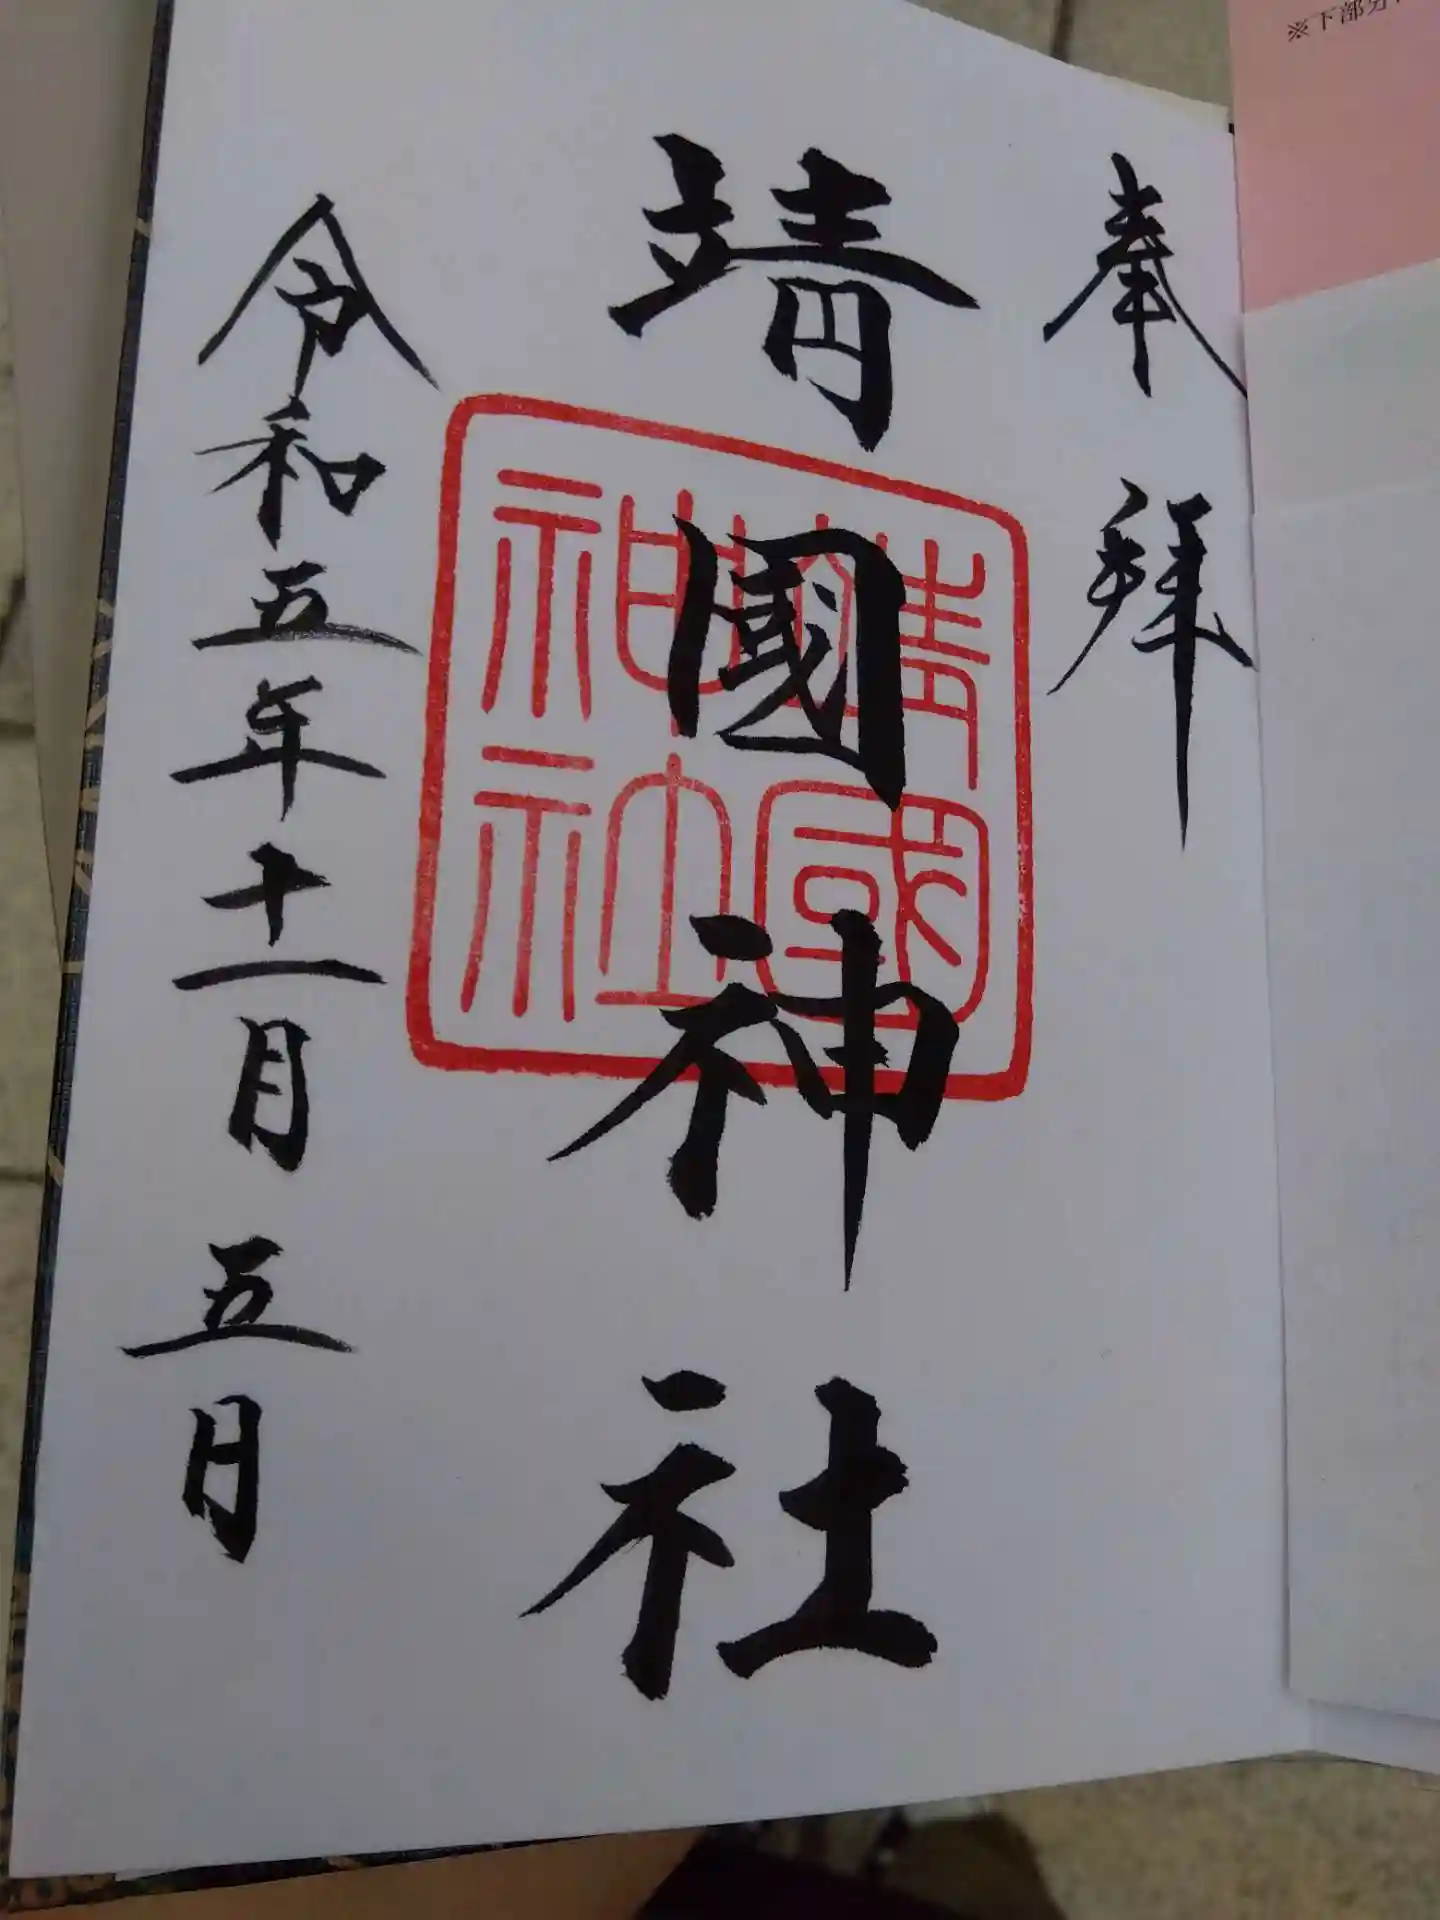 ※下部分
奉拝
靖國神社
靖國
神社
令和五年十一月五日